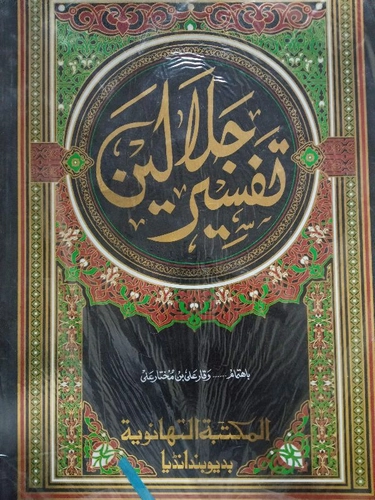 تفسیر جلالین
باهتمام ...... وقار علی بن مختار علی
المكتبة التهانوية
بديوبند انديا